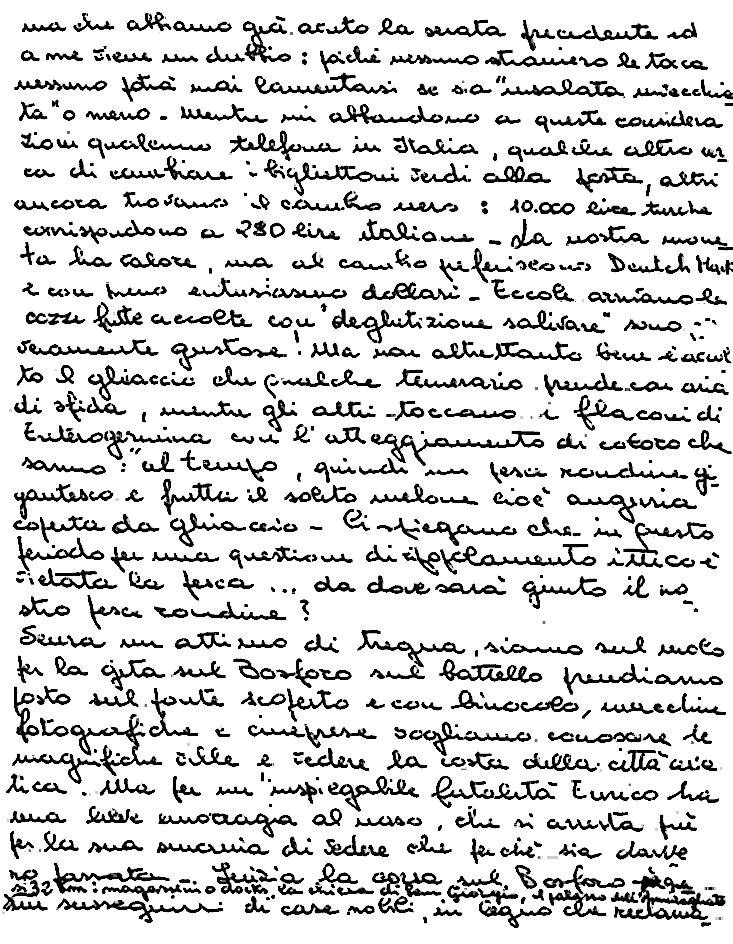 ma che abbiamo già avuto la serata precedente ed
a me viene un dubbio: poiché nessuno straniero le tocca
nessuno potrà mai lamentarsi se sia "insalata vivecchia
ta" o meno - Mentre mi abbandono a queste considera
zioni qualcuno telefona in Italia, qualche altro cer
ca di cambiare i bigliettoni verdi alla posta, altri
ancora trovano il cambio nero: 10.000 lire turche
corrispondono a 280 lire italiane - La nostra mone
ta ha valore, ma al cambio preferiscono Deutch Mark
e con meno entusiasmo dollari - Eccole arrivano le
cozze fritte accolte con "deglutizione salivare" sono
veramente gustose! Ma non altrettanto bene è accol
to il ghiaccio che qualche temerario prende con aria
di sfida, mentre gli altri toccano i flaconi di
Enterogermina con l'atteggiamento di coloro che
sanno: "al tempo, quindi un pesce rondine gi-
gantesco e frutta il solito melone cioè anguria
coperta da ghiaccio - Ci spiegano che in questo
periodo per una questione di ripopolamento ittico è
vietata la pesca ... da dove sarà giunto il no-
stro pesce rondine?
Senza un attimo di tregua, siamo sul molo
per la gita sul Bosforo sul battello prendiamo
posto sul ponte scoperto e con binocolo, macchine
fotografiche e cineprese vogliamo conoscere le
magnifiche ville e vedere la costa della città asia
tica. Ma per un'inspiegabile fatalità Enrico ha
una lieve emorragia al naso, che si arresta più
per la sua smania di vedere che perché sia davve
ro passata - Inizia la corsa sul Bosforo
si 32 km: magazzini o docks la chiesa di San Giorgio, il palazzo dell'Ammiragliato
un susseguirsi di case nobili, in legno che reclama-